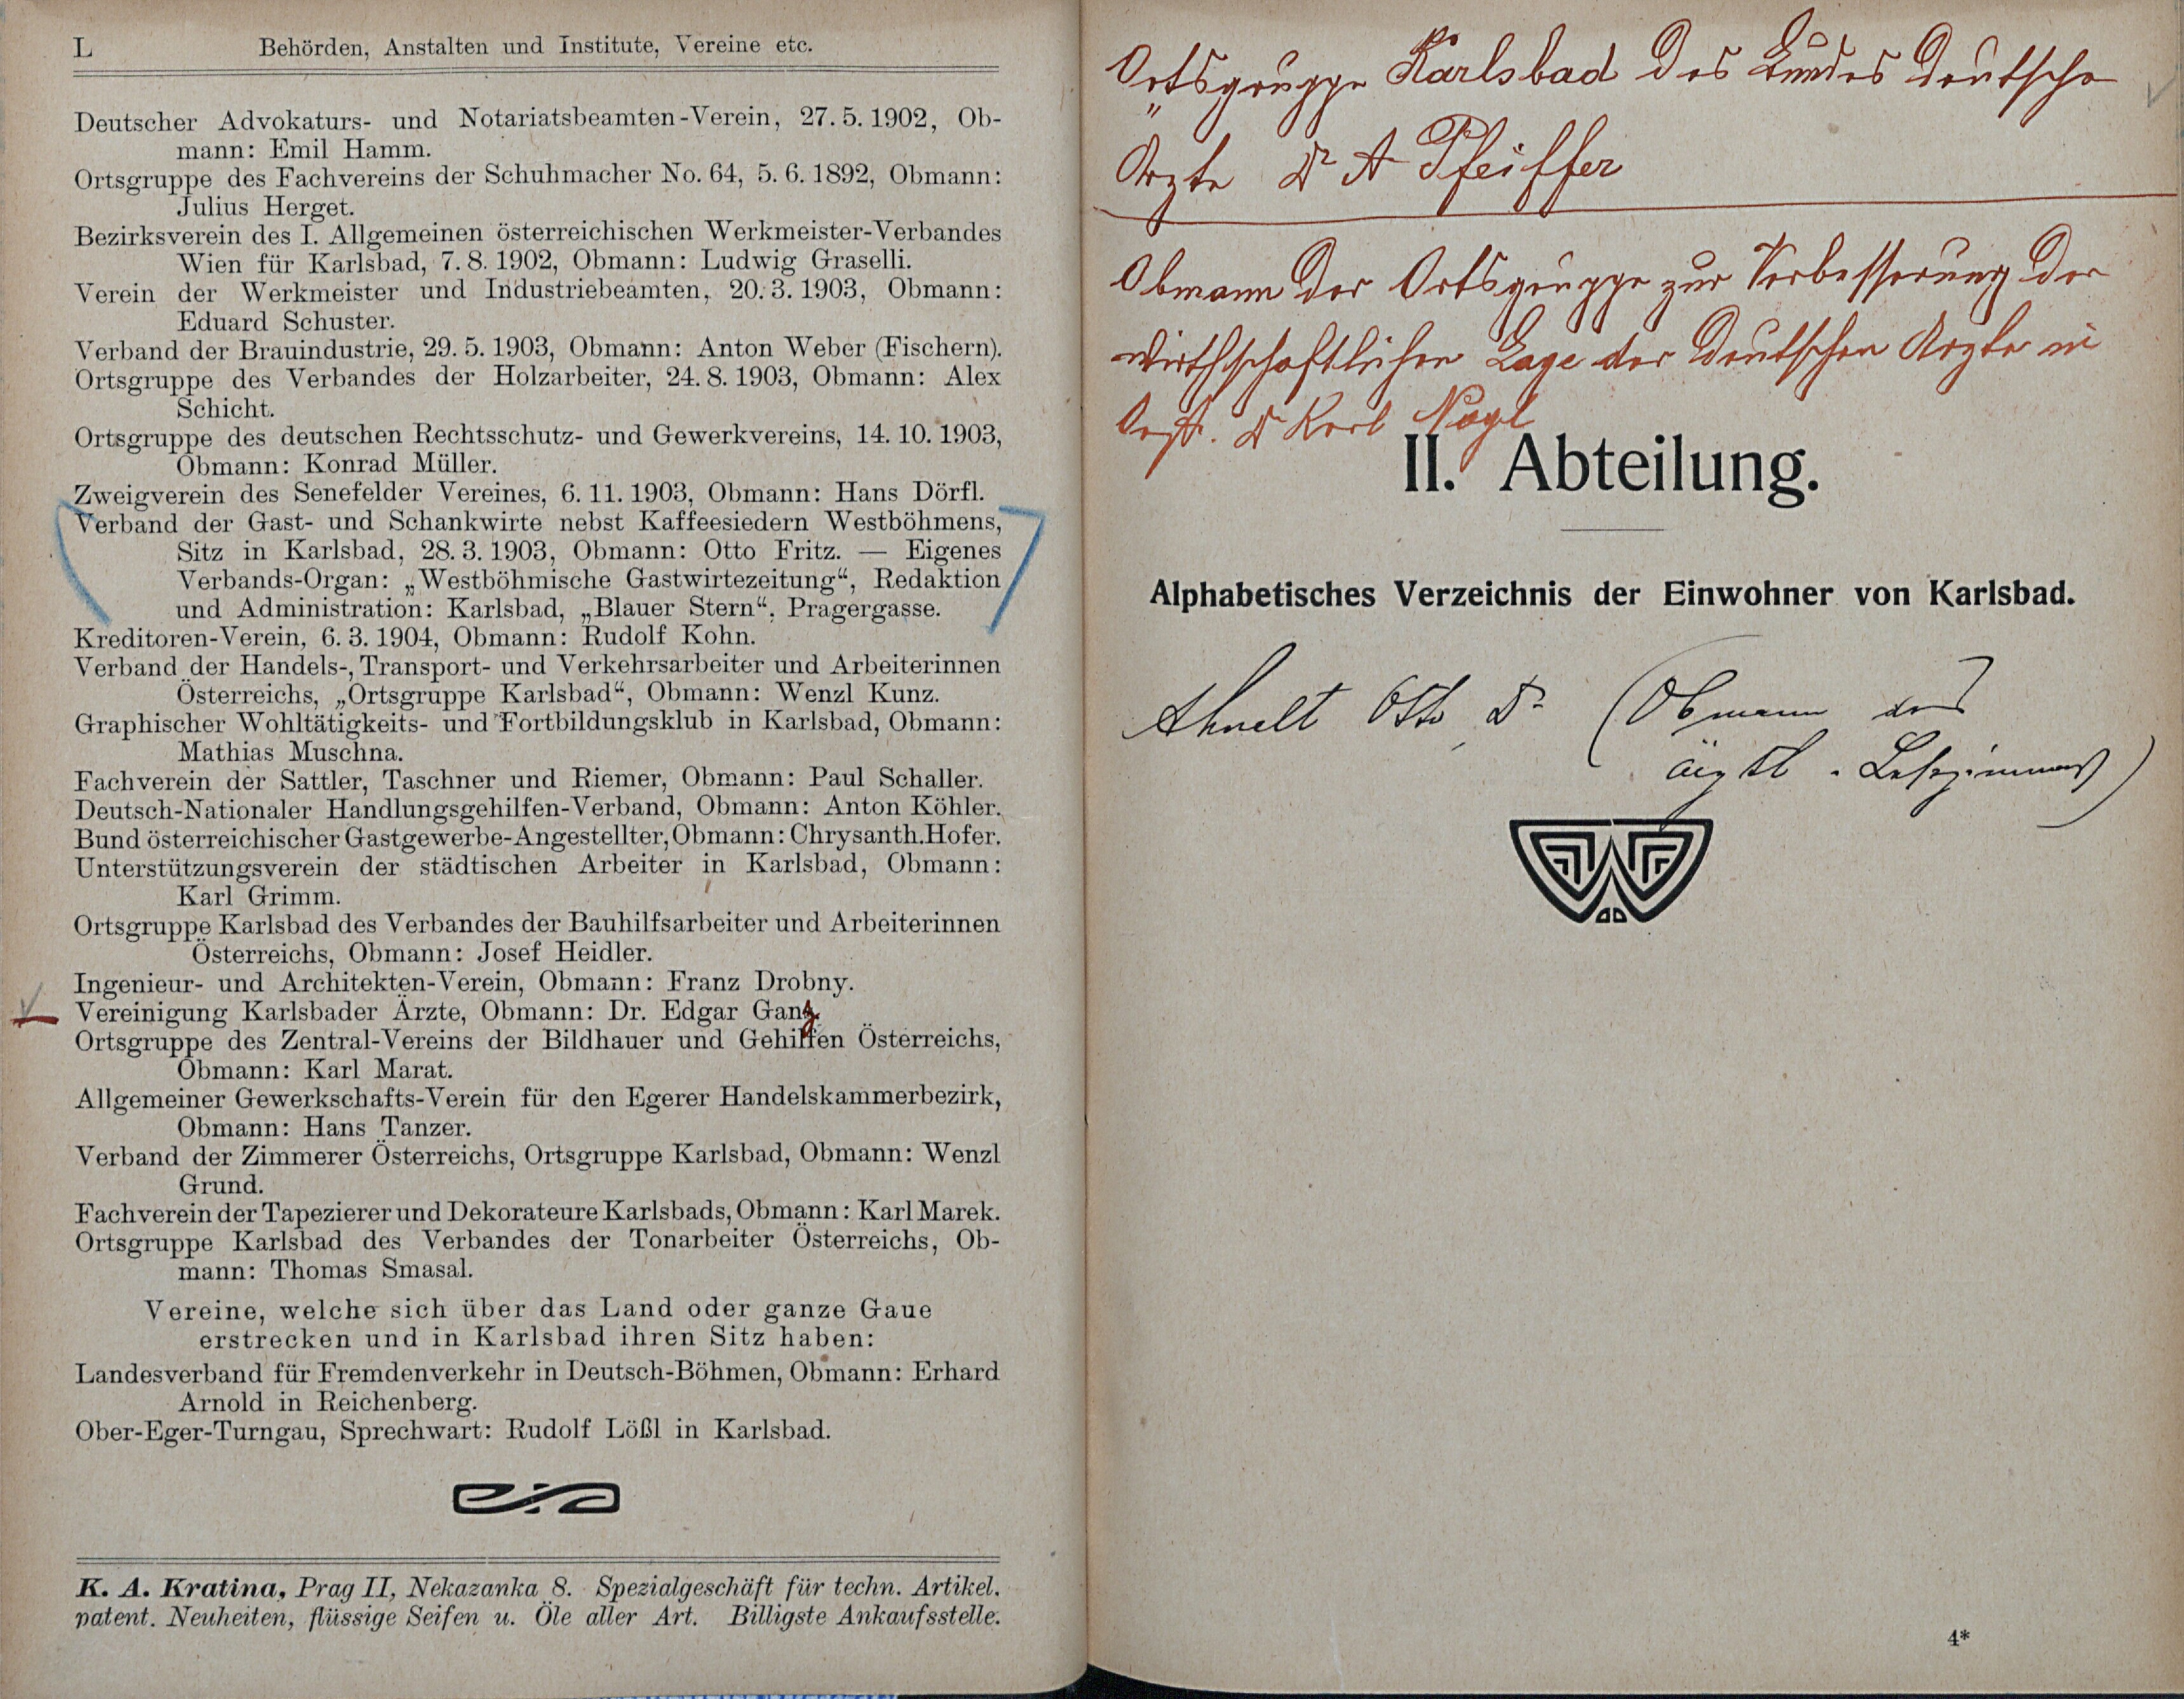 L Behörden, Anstalten und Institute, Vereine etc.
Deutscher Advokaturs- und Notariatsbeamten-Verein, 27. 5. 1902, Ob-
mann: Emil Hamm.
Ortsgruppe des Fachvereins der Schuhmacher No. 64, 5. 6. 1892, Obmann:
Julius Herget.
Bezirksverein des I. Allgemeinen österreichischen Werkmeister-Verbandes
Wien für Karlsbad, 7. 8. 1902, Obmann: Ludwig Graselli.
Verein der Werkmeister und Industriebeamten, 20. 3. 1903, Obmann:
Eduard Schuster.
Verband der Brauindustrie, 29. 5. 1903, Obmann: Anton Weber (Fischern).
Ortsgruppe des Verbandes der Holzarbeiter, 24. 8. 1903, Obmann: Alex
Schicht.
Ortsgruppe des deutschen Rechtsschutz- und Gewerkvereins, 14. 10. 1903,
Obmann: Konrad Müller.
Zweigverein des Senefelder Vereines, 6. 11. 1903, Obmann: Hans Dörfl.
Verband der Gast- und Schankwirte nebst Kaffeesiedern Westböhmens,
Sitz in Karlsbad, 28. 3. 1903, Obmann: Otto Fritz. — Eigenes
Verbands-Organ: „Westböhmische Gastwirtezeitung“, Redaktion
und Administration: Karlsbad, „Blauer Stern“, Pragergasse.
Kreditoren-Verein, 6. 3. 1904, Obmann: Rudolf Kohn.
Verband der Handels-, Transport- und Verkehrsarbeiter und Arbeiterinnen
Österreichs, „Ortsgruppe Karlsbad“, Obmann: Wenzl Kunz.
Graphischer Wohltätigkeits- und Fortbildungsklub in Karlsbad, Obmann:
Mathias Muschna.
Fachverein der Sattler, Taschner und Riemer, Obmann: Paul Schaller.
Deutsch-Nationaler Handlungsgehilfen-Verband, Obmann: Anton Köhler.
Bund österreichischer Gastgewerbe-Angestellter, Obmann: Chrysanth. Hofer.
Unterstützungsverein der städtischen Arbeiter in Karlsbad, Obmann:
Karl Grimm.
Ortsgruppe Karlsbad des Verbandes der Bauhilfsarbeiter und Arbeiterinnen
Österreichs, Obmann: Josef Heidler.
Ingenieur- und Architekten-Verein, Obmann: Franz Drobny.
Vereinigung Karlsbader Ärzte, Obmann: Dr. Edgar Ganz.
Ortsgruppe des Zentral-Vereins der Bildhauer und Gehilfen Österreichs,
Obmann: Karl Marat.
Allgemeiner Gewerkschafts-Verein für den Egerer Handelskammerbezirk,
Obmann: Hans Tanzer.
Verband der Zimmerer Österreichs, Ortsgruppe Karlsbad, Obmann: Wenzl
Grund.
Fachverein der Tapezierer und Dekorateure Karlsbads, Obmann: Karl Marek.
Ortsgruppe Karlsbad des Verbandes der Tonarbeiter Österreichs, Ob-
mann: Thomas Smasal.
Vereine, welche sich über das Land oder ganze Gaue
erstrecken und in Karlsbad ihren Sitz haben:
Landesverband für Fremdenverkehr in Deutsch-Böhmen, Obmann: Erhard
Arnold in Reichenberg.
Ober-Eger-Turngau, Sprechwart: Rudolf Lößl in Karlsbad.
K. A. Kratina, Prag II, Nekazanka 8. Spezialgeschäft für techn. Artikel.
patent. Neuheiten, flüssige Seifen u. Öle aller Art. Billigste Ankaufsstelle.
Ortsgruppe Karlsbad des Bundes deutsche
Ärzte Dr A Pfeiffer
Obmann der Ortsgruppe zur Verbesserung der
wirthschaftlichen Lage der deutschen Ärzte in
Dr Karl Nagl
II. Abteilung.
Alphabetisches Verzeichnis der Einwohner von Karlsbad.
Ahnelt Otto, Dr (Obmann des
ärztl. Lesezimmers)
4*